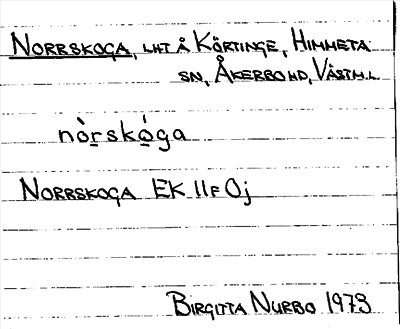 NORRSKOGA, LHT Å KÖRTINGE, HIMMETA
SN, ÅKERBO HD, VÄSTM.L.
nòrskóga
NORRSKOGA EK 11F 0j
BIRGITTA NURBO 1973